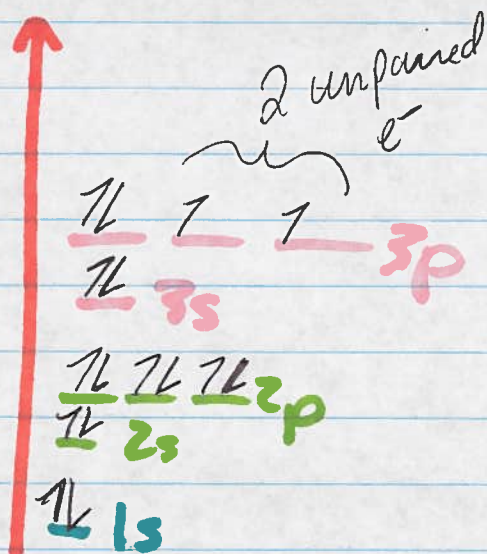 2 unpaired
e-
3p
3s
2p
2s
1s